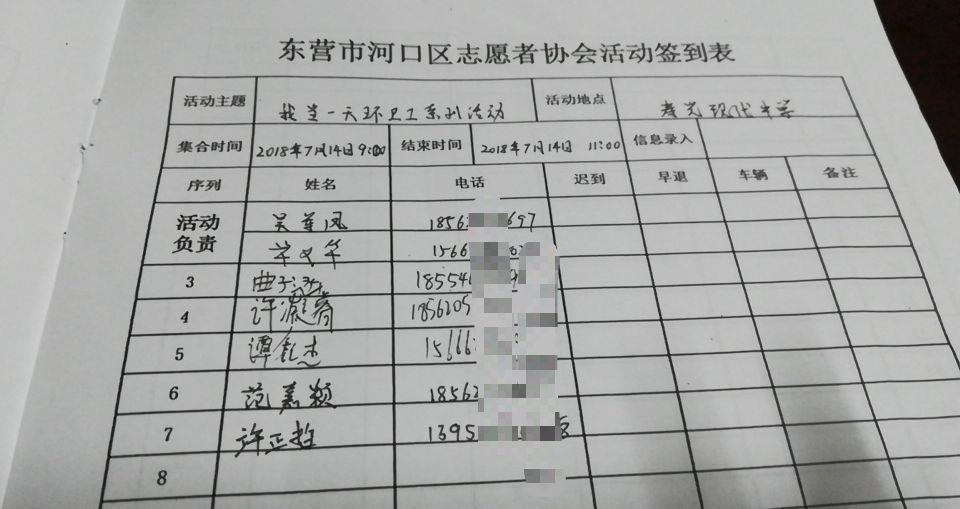 东营市河口区志愿者协会活动签到表
活动主题 我当一天环卫工系列活动 活动地点 寿光现代中学
集合时间 2018年7月14日9:00 结束时间 2018年7月14日 11:00 信息录入
序列 姓名 电话 迟到 早退 车辆 备注
活动负责 吴 凤 1856 697
1566
3 曲 1855
4 许凝春 1856205
5 谭 杰 1566
6 范嘉颖 1856
7 许正 1395
8